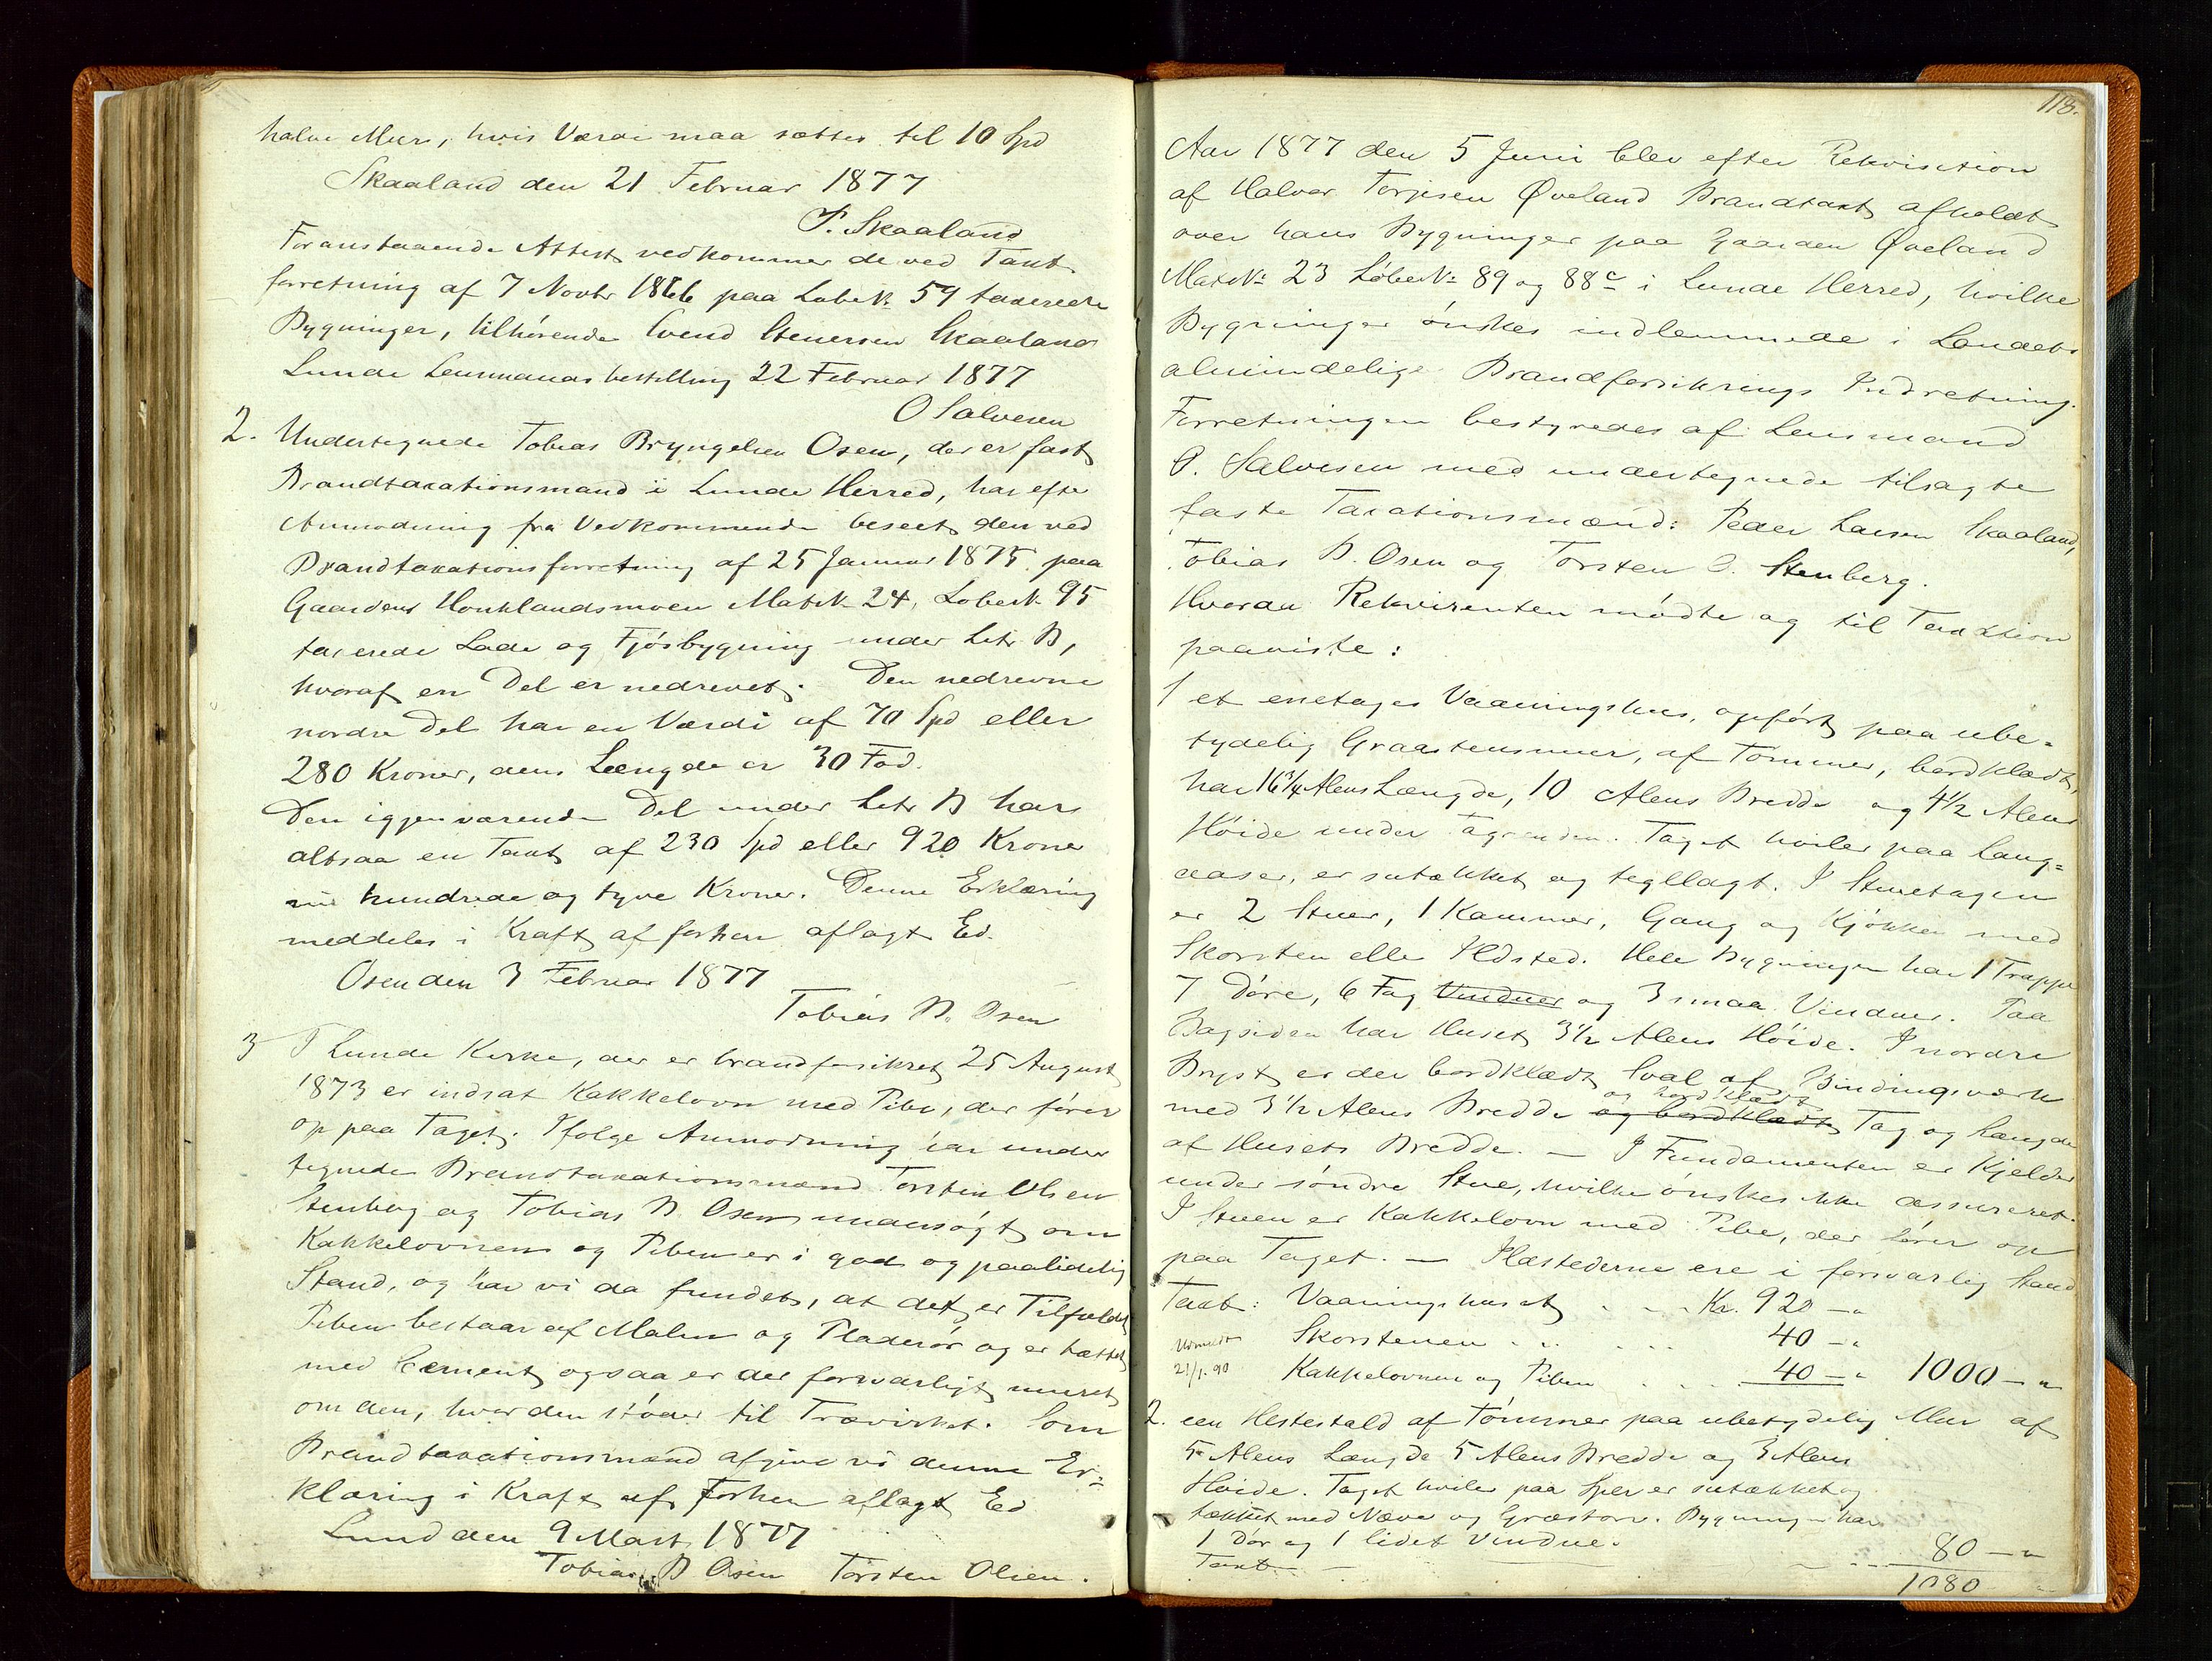 halve Mur, hvis Værdi maa sættes til 10 Spd
Skaaland den 21 Februar 1877
P. Skaaland
Foranstaaende Attest vedkommer de ved Taxt
forretning af 7 Novbr 1866 paa Løbe№ 59 taxerede
Bygninger, tilhørende Svend Stenersen Skaaland
Lunde Lensmandsbestilling 22 Februar 1877
O Salvesen
2. Undertegnede Tobias Bryngelsen Osen, der er fast
Brandtaxationsmand i Lunde Herred, har efter
Anmodning fra Vedkommende beseet den ved
Brandtaxationsforretning af 25 Januar 1875 paa
Gaarden Houklandsmoen Matr№ 24, Løbe№ 95
taxerede Lade og Fjøsbygning under Litr B,
hvoraf en Del er nedrevet. Den nedrevne
nordre Del har en Værdi af 70 Spd eller
280 Kroner, dens Længde er 30 Fod.
Den igjenværende Del under Litr B har
altsaa en Taxt af 230 Spd eller 920 Kroner
ni hundrede og tyve Kroner. Denne Erklæring
meddeles i Kraft af forhen aflagt Ed.
Osen den 3 Februar 1877
Tobias B. Osen
3 I Lunde Kirke, der er brandforsikret 25 August
1873 er indsat Kakkelovn med Pibe, der fører
op paa Taget. Ifølge Anmodning har under
tegnede Brandtaxationsmænd Torsten Olsen
Stenberg og Tobias B. Osen undersøgt om
Kakkelovnen og Piben er i god og paalidelig
Stand, og har vi da fundet, at det er Tilfældet
Piben bestaar af Malm og Pladerør og er tættet
med Cement, ogsaa er der forsvarligt muret
om den, hvor den støder til Trævirket. Som
Brandtaxationsmænd afgive vi denne Er=
klæring i Kraft af forhen aflagt Ed
Lund den 9 Mart 1877
Tobias B Osen Torsten Olsen.
118.
Aar 1877 den 5 Juni blev efter Rekvisition
af Halvor Torjesen Øveland Brandtaxt afholdt
over hans Bygninger paa Gaarden Øveland
Matr№ 23 Løbe№ 89 og 88c i Lunde Herred, hvilke
Bygninger ønskes indlemmede i Landets
almindelige Brandforsikrings Indretning.
Forretningen bestyredes af Lensmand
O. Salvesen med undertegnede tilsagte
faste Taxationsmænd: Peder Larsen Skaaland,
Tobias B. Osen og Torsten O. Stenberg.
Hvorda Rekvirenten mødte og til Taxation
paaviste:
1 et enetages Vaaningshus, opført paa ube=
tydelig Graastensmur, af Tømmer, bordklædt,
har 16 3/4 Alens Længde, 10 Alens Bredde og 4 1/2 Alens
Høide under Tagrenden. Taget hviler paa Lang=
aaser, er sutækket og tegllagt. I Stuetagen
er 2 Stuer, 1 Kammer, Gang og Kjøkken med
Skorsten eller Ildsted. Hele Bygningen har 1 Trappe
7 Døre, 6 Fag Vinduer og 3 smaa Vinduer. Paa
Bagsiden har Huset 3 1/2 Alens Høide. I nordre
Bryst er der bordklædt Sval af Bindingsværk
og bordklædt
med 3 1/2 Alens Bredde og bordklædt Tag og Længde
af Husets Bredde. — I Fundamenten er Kjelder
under søndre Stue, hvilke ønskes ikke assureret.
I Stuen er Kakkelovn med Pibe, der fører op
paa Taget. — Ildstederne ere i forsvarlig Stand
Taxt: Vaaningshuset . . . Kr. 920 — "
Skorstenen . . . . . 40 — "
21/1.90 Kakkelovnen og Piben . . . 40 — " 1000 — "
2. een Hestestald af Tømmer paa ubetydelig Mur af
5 Alens Længde 5 Alens Bredde og 3 Alens
Høide. Taget hviler paa Sper er sutækket og
tækket med Næver og Græstorv. Bygningen har
1 Dør og 1 lidet Vindue.
Taxt — — . . . 80 — "
1080